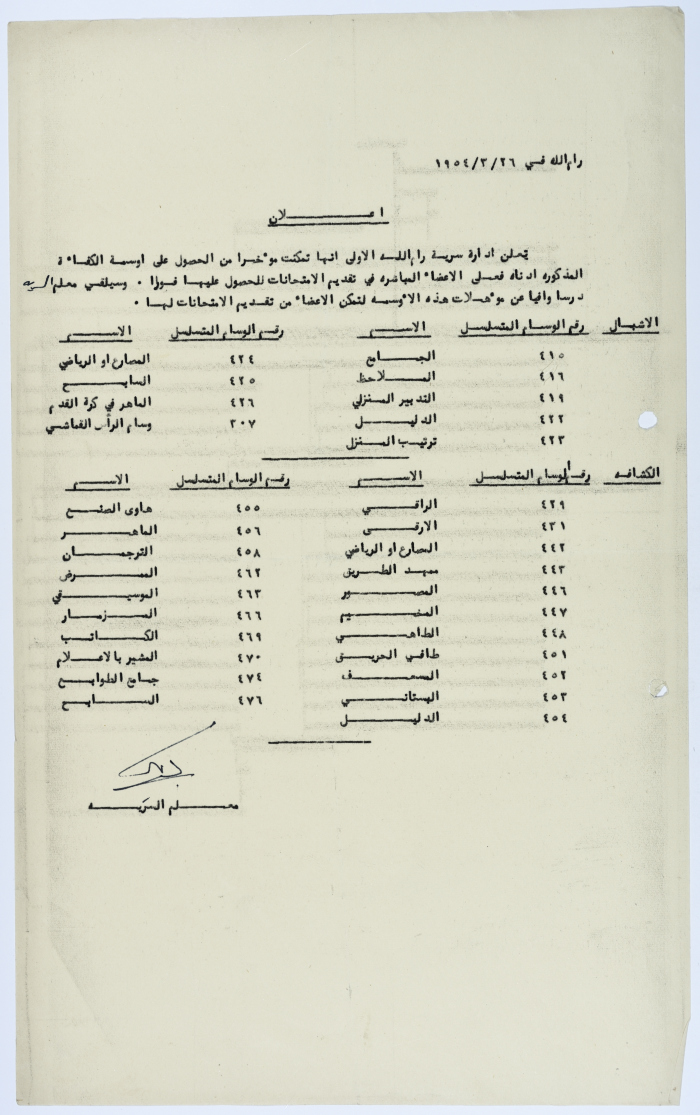 رام الله في ٢٦/٣/١٩٥٤
اعــلان
تعلن ادارة سرية رام الله الاولى انها تمكنت موءخرا من الحصول على اوسمة الكفاءة
المذكوره ادناه فعلى الاعضاء المباشره في تقديم الامتحانات للحصول عليها فورا . وسيلقي معلم السريه
درسا وافيا عن موءهلات هذه الاوسمه لتمكن الاعضاء من تقديم الامتحانات لها .
الاشبال رقم الوسام المتسلسل الاسم رقم الوسام المتسلسل الاسم
٤١٥ الجامع ٤٢٤ المصارع او الرياضي
٤١٦ الملاحظ ٤٢٥ السابح
٤١٩ التدبير المنزلي ٤٢٦ الماهر في كرة القدم
٤٢٢ الدليل ٣٠٧ وسام الرأس القماشي
٤٢٣ ترتيب المنزل
الكشافه رقم الوسام المتسلسل الاسم رقم الوسام المتسلسل الاسم
٤٢٩ الراقي ٤٥٥ هاوى الصنع
٤٣١ الارقى ٤٥٦ الماهر
٤٤٢ المصارع او الرياضي ٤٥٨ الترجمان
٤٤٣ ممهد الطريق ٤٦٢ الممرض
٤٤٦ المصور ٤٦٣ الموسيقي
٤٤٧ المخيم ٤٦٦ المزمار
٤٤٨ الطاهي ٤٦٩ الكاتب
٤٥١ طافي الحريق ٤٧٠ المشير بالاعلام
٤٥٢ المسعف ٤٧٤ جامع الطوابع
٤٥٣ البستاني ٤٧٦ السابح
٤٥٤ الدليل
معلم السريه